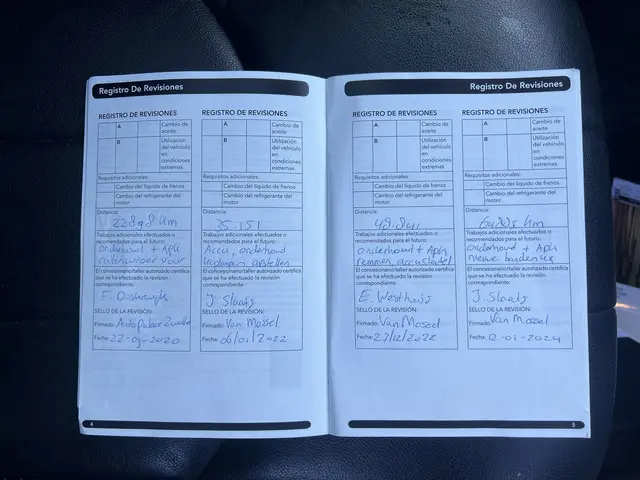 Registro De Revisiones
REGISTRO DE REVISIONES
A
Cambio de
aceite
B
Utilización
del vehículo
en
condiciones
extremas
Requisitos adicionales:
Cambio del líquido de frenos
Cambio del refrigerante del
motor
Distancia:
Km
Trabajos adicionales efectuados o
recomendados para el futuro:
onderhoud + Apk
ruitenwisser voor
El concesionario/taller autorizado certifica
que se ha efectuado la revisión
correspondiente
F.
SELLO DE LA REVISIÓN:
Firmado: Auto Palace
Fecha: 2020
REGISTRO DE REVISIONES
A
Cambio de
aceite
B
Utilización
del vehículo
en
condiciones
extremas
Requisitos adicionales:
Cambio del líquido de frenos
Cambio del refrigerante del
motor
Distancia:
35.151
Trabajos adicionales efectuados o
recomendados para el futuro:
Accu, onderhoud
El concesionario/taller autorizado certifica
que se ha efectuado la revisión
correspondiente
J. Slaats
SELLO DE LA REVISIÓN:
Firmado: Van Mossel
Fecha: 06/01/2022
4
Registro De Revisiones
REGISTRO DE REVISIONES
A
Cambio de
aceite
B
Utilización
del vehículo
en
condiciones
extremas
Requisitos adicionales:
Cambio del líquido de frenos
Cambio del refrigerante del
motor
Distancia:
Trabajos adicionales efectuados o
recomendados para el futuro:
onderhoud + Apk
remmen
El concesionario/taller autorizado certifica
que se ha efectuado la revisión
correspondiente
E. Westhuis
SELLO DE LA REVISIÓN:
Firmado: Van Mossel
Fecha: 27/12/2022
REGISTRO DE REVISIONES
A
Cambio de
aceite
B
Utilización
del vehículo
en
condiciones
extremas
Requisitos adicionales:
Cambio del líquido de frenos
Cambio del refrigerante del
motor
Distancia:
Km
Trabajos adicionales efectuados o
recomendados para el futuro:
onderhoud + Apk
nieuwe banden
El concesionario/taller autorizado certifica
que se ha efectuado la revisión
correspondiente
J. Slaats
SELLO DE LA REVISIÓN:
Firmado: Van Mossel
Fecha: 12-01-2024
5